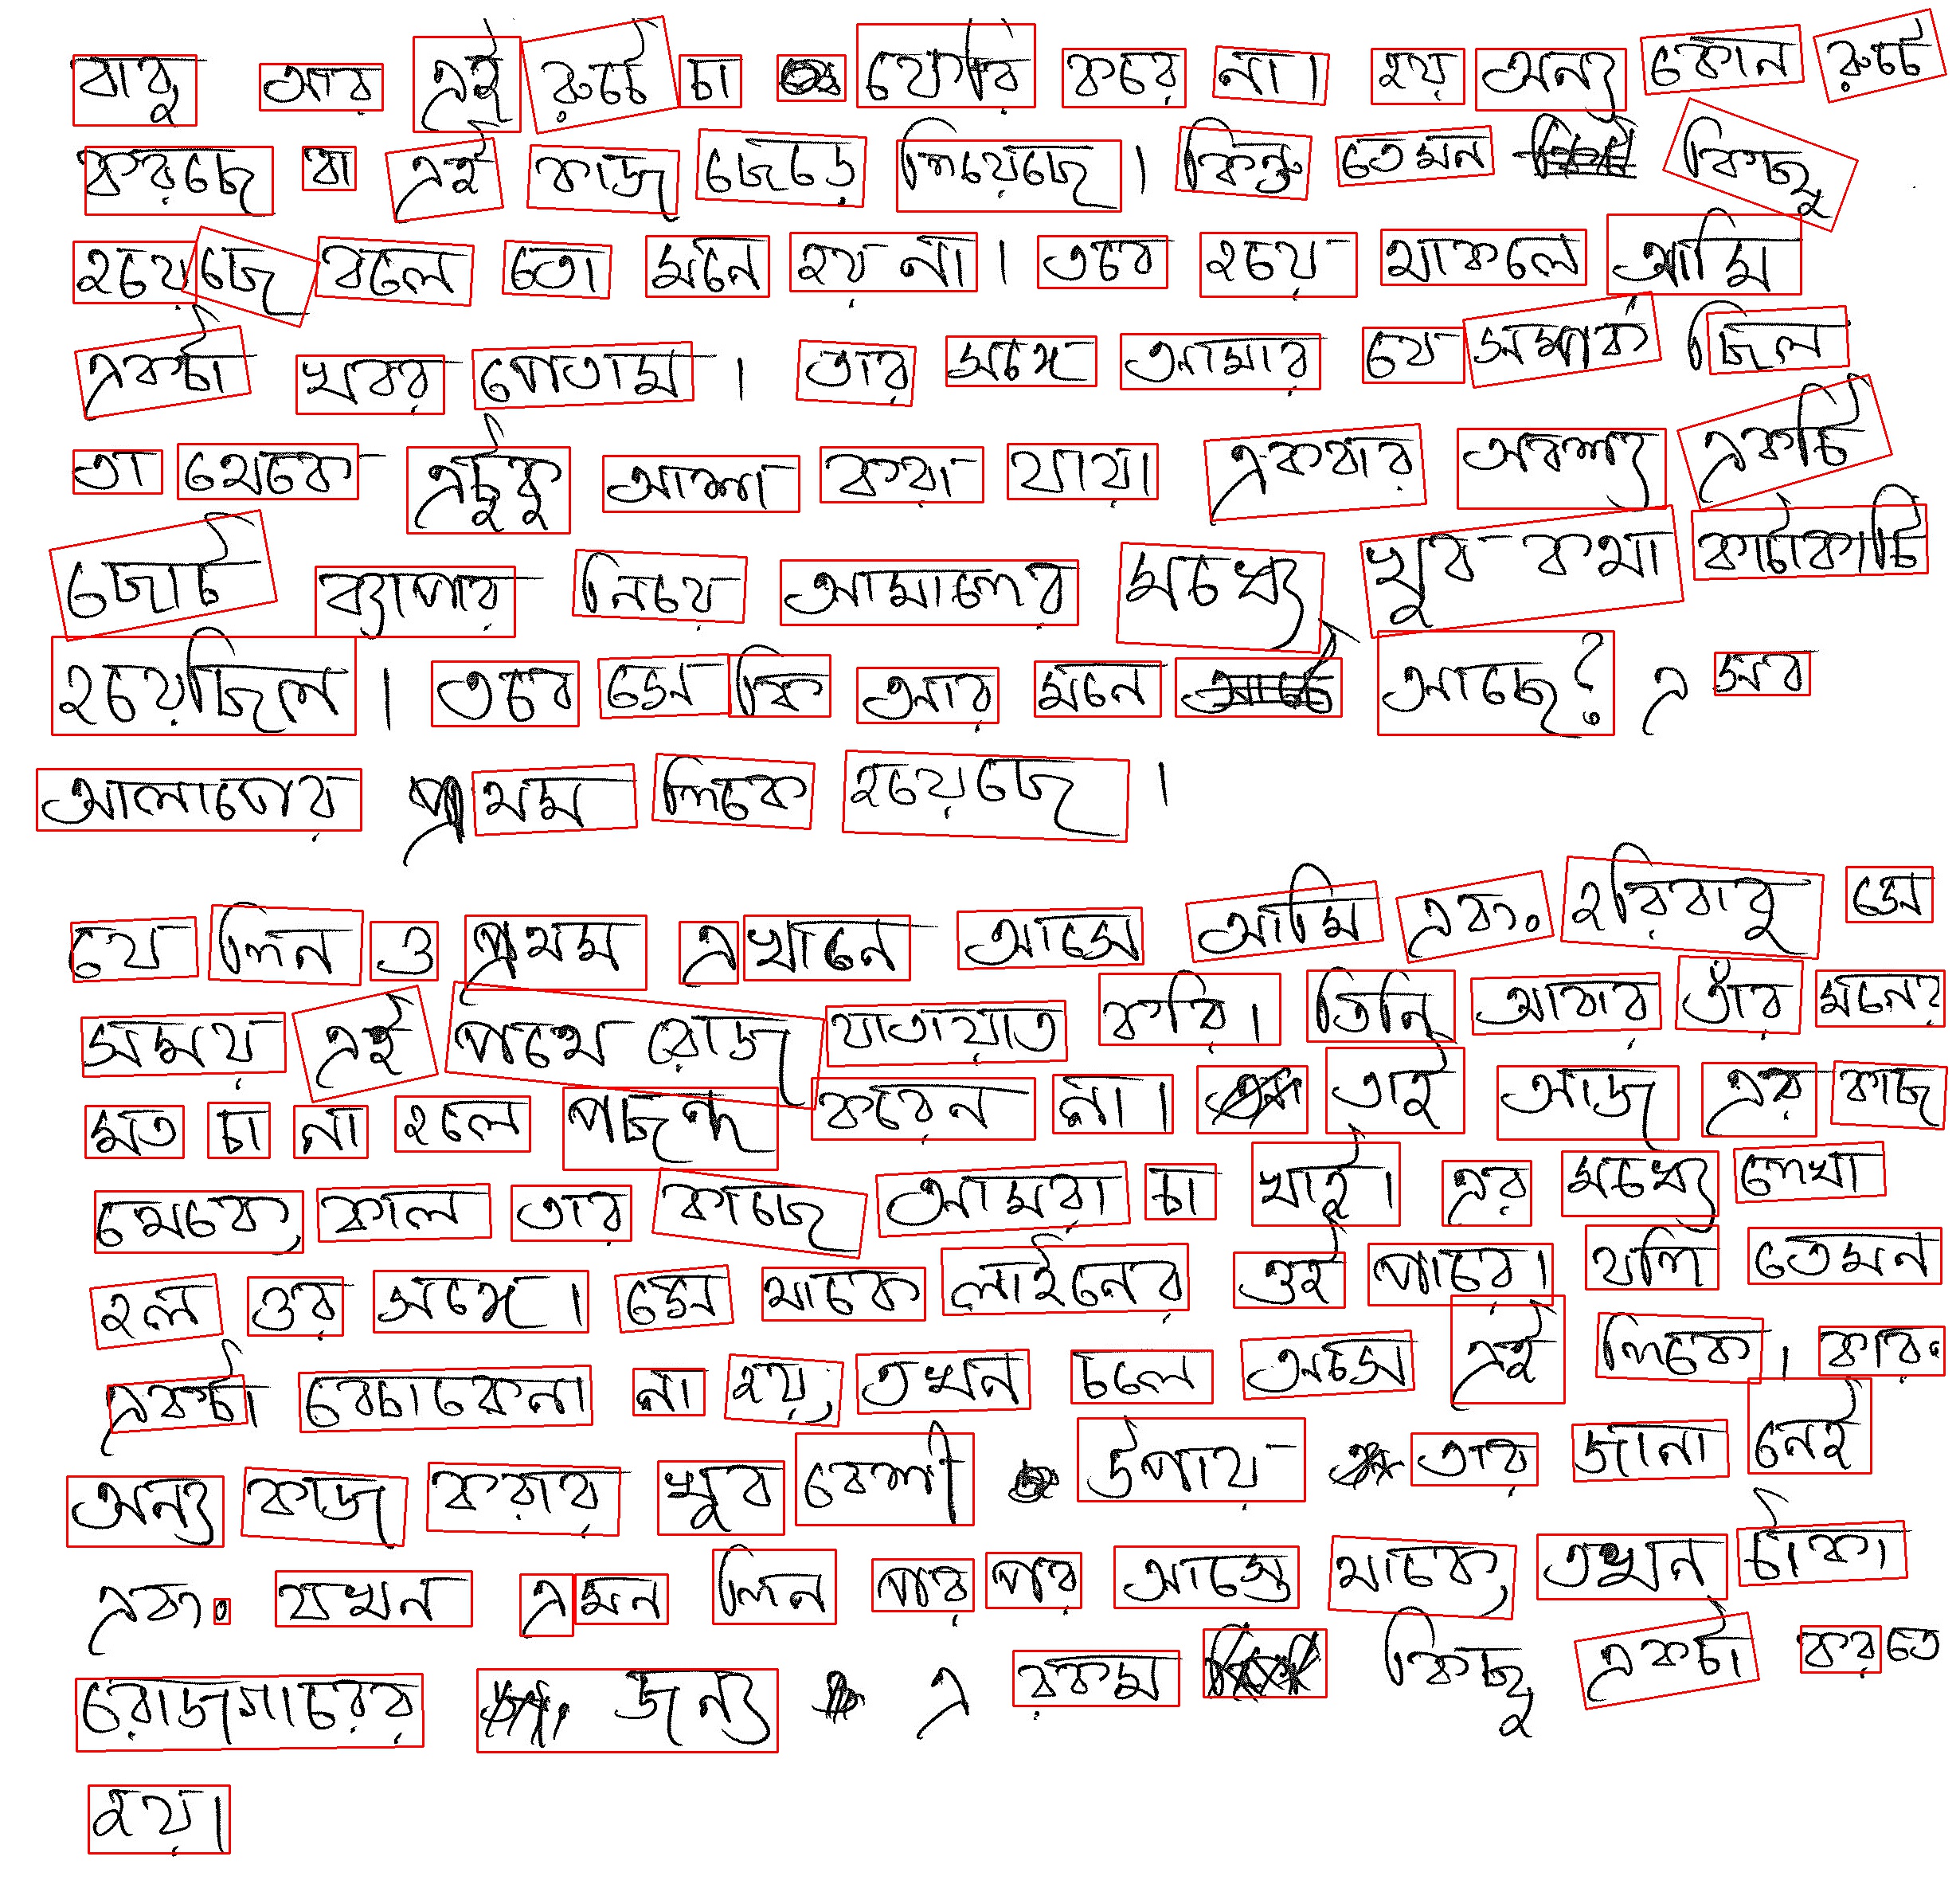 বাবু আর এই রুটে চা ফেরি করে না। হয় অন্য কোন রুটে
করছে বা এই কাজ ছেড়ে দিয়েছে। কিন্তু তেমন কিছু
হয়েছে বলে তো মনে হয় না। তবে হয়ে থাকলে আমি
একটা খবর পেতাম। তার সঙ্গে আমার যে সম্পর্ক ছিল
তা থেকে এটুকু আশা করা যায়। একবার অবশ্য একটি
ছোট ব্যাপার নিয়ে আমাদের মধ্যে খুব কথা কাটাকাটি
হয়েছিল। তবে সে কি আর মনে আছে? এ সব
আলাপের প্রথম দিকে হয়েছে।
যে দিন ও প্রথম এখানে আসে আমি এবং হরিবাবু সে
সময় এই পথে রোজ যাতায়াত করি। তিনি আবার তাঁর মনের
মত চা না হলে পছন্দ করেন না। তাই আজ এর কাছ
থেকে, কাল তার কাছে আমরা চা খাই। এর মধ্যে দেখা
হল ওর সঙ্গে। সে থাকে লাইনের ওই পারে। যদি তেমন
একটা বেচাকেনা না হয়, তখন চলে আসে এই দিকে। কারণ
অন্য কাজ করার খুব বেশী উপায় তার জানা নেই
এবং যখন এমন দিন পর পর আসতে থাকে, তখন টাকা
রোজগারের জন্য এ রকম কিছু একটা করতে
হয়।